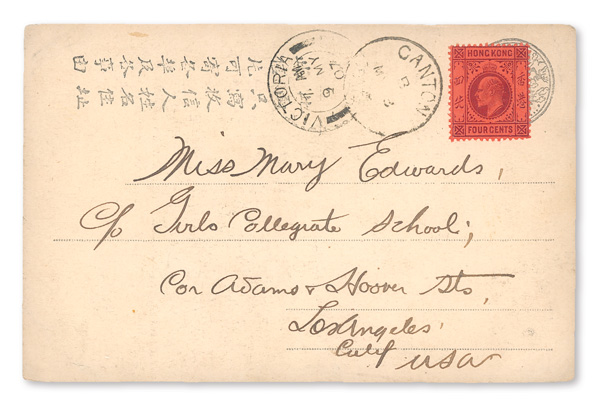 只寫收信人姓名住址
VICTORIA
9 MY
07
CANTON
B
HONG KONG
FOUR CENTS
Miss Mary Edwards,
c/o Girls Collegiate School;
Cor Adams & Hoover Sts,
Los Angeles
Calif USA